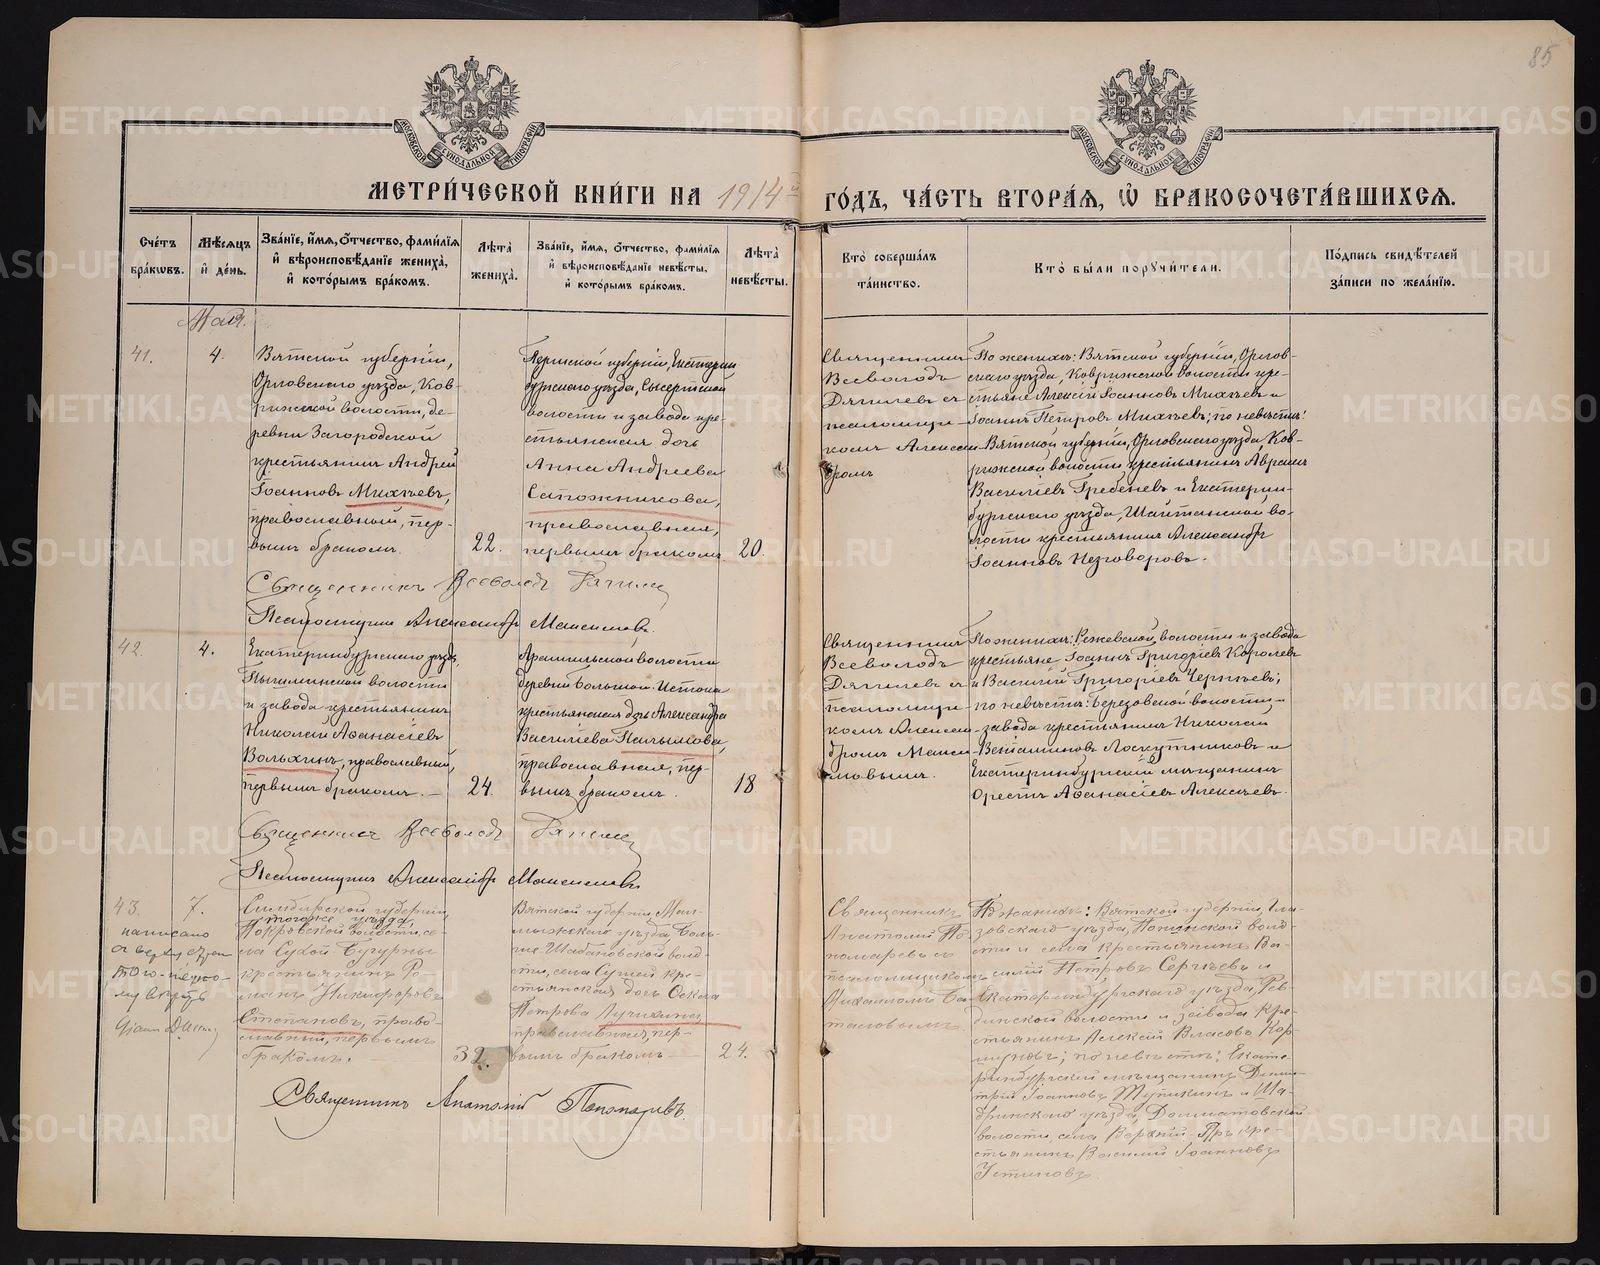 85
МОСКОВСКОЙ СѴНОДАЛЬНОЙ ТИПОГРАФІИ
МОСКОВСКОЙ СѴНОДАЛЬНОЙ ТИПОГРАФІИ
МЕТРИ́ЧЕСКОЙ КНИ́ГИ НА 1914й ГО́ДЪ, ЧА́СТЬ ВТОРА́Я, Ѽ БРАКОСОЧЕТА́ВШИХСЯ.
Сче́тъ бра́кѡвъ.
Мѣ́сяцъ и҆ де́нь.
Зва́нїе, и҆́мя, ѻ҆́тчество, фами́лїя и҆ вѣроисповѣ́данїе жениха̀, и҆ кото́рымъ бра́комъ.
Лѣ́та жениха̀.
Зва́нїе, и҆́мя, ѻ҆́тчество, фами́лїя и҆ вѣроисповѣ́данїе невѣ́сты, и҆ кото́рымъ бра́комъ.
Лѣ́та невѣ́сты.
Кто̀ соверша́лъ та́инство.
Кто̀ бы́ли поручи́тели.
По́дпись свидѣ́телей за́писи по жела́нїю.
Мая.
41.
4.
Вятской губерніи,
Орловскаго уѣзда, Ков-
рижской волости, де-
ревни Загородской
крестьянинъ Андрей
Іоанновъ Михѣевъ,
православный, пер-
вымъ бракомъ.
22.
Пермской губерніи, Екатерин-
бургскаго уѣзда, Сысертской
волости и завода кре-
стьянская дочь
Анна Андреева
Сапожникова,
православная,
первымъ бракомъ
20.
Священникъ
Всеволодъ
Дягилевъ съ
псаломщи-
комъ Алексан-
дромъ
По женихѣ: Вятской губерніи, Орлов-
скаго уѣзда, Коврижской волости кре-
стьяне Алексій Іоанновъ Михѣевъ и
Іоаннъ Петровъ Михѣевъ; по невѣстѣ:
Вятской губерніи, Орловскаго уѣзда, Ков-
рижской волости крестьянинъ Авраамъ
Василіевъ Гребеневъ и Екатерин-
бургскаго уѣзда, Шайтанской во-
лости крестьянинъ Александръ
Іоанновъ Незговоровъ.
Священникъ Всеволодъ Дягилевъ
Псаломщикъ Александръ Максимовъ.
42.
4.
Екатеринбургскаго уѣзда,
Пышминской волости
и завода крестьянинъ
Николай Аѳанасіевъ
Вольхинъ, православный,
первымъ бракомъ.
24.
Арамильской волости
деревни Большой-Истока
крестьянская дочь Александра
Василіева Палымова,
православная, пер-
вымъ бракомъ.
18
Священникъ
Всеволодъ
Дягилевъ съ
псаломщи-
комъ Алексан-
дромъ Макси-
мовымъ.
По женихѣ: Режевской волости и завода
крестьяне Іоаннъ Григоріевъ Королевъ
и Василій Григоріевъ
по невѣстѣ: Березовской волости-
завода крестьянинъ Николай
Веніаминовъ Лоскутниковъ и
Екатеринбургскій мѣщанинъ
Орестъ Аѳанасіевъ Алексѣевъ.
Священникъ Всеволодъ Дягилевъ
Псаломщикъ Александръ Максимовъ
43.
7.
написано
Симбирской губерніи
тогоже уѣзда,
Покровской волости, се-
ла Сухой
крестьянинъ Ро-
манъ Никифоровъ
Степановъ, право-
славный, первымъ
бракомъ.
32.
Вятской губерніи, Мал-
мыжского уѣзда Боль-
ше-Шабановской воло-
сти, села Сушей кре-
стьянская дочь Ѳекла
Петрова Лучихина
православная, пер-
вымъ бракомъ
24.
Священникъ
Анатолій По-
номаревъ съ
псаломщикомъ
Михаиломъ
По женихѣ: Вятской губерніи, Гла-
зовскаго уѣзда, Понинской воло-
сти и села крестьянинъ Ва-
силій Петровъ Сергѣевъ и
Екатеринбургскаго уѣзда, Рев-
динской волости и завода кре-
стьянинъ Алексій Власовъ Кор-
муновъ; по невѣстѣ: Екате-
ринбургскій мѣщанинъ Дими-
трій Іоанновъ Тупикинъ и Ша-
дринскаго уѣзда, Долматовской
волости, села Верхній-Яръ кре-
стьянинъ Василій Іоанновъ
Устиновъ.
Священникъ Анатолій Пономаревъ
METRIKI.GASO-URAL.RU